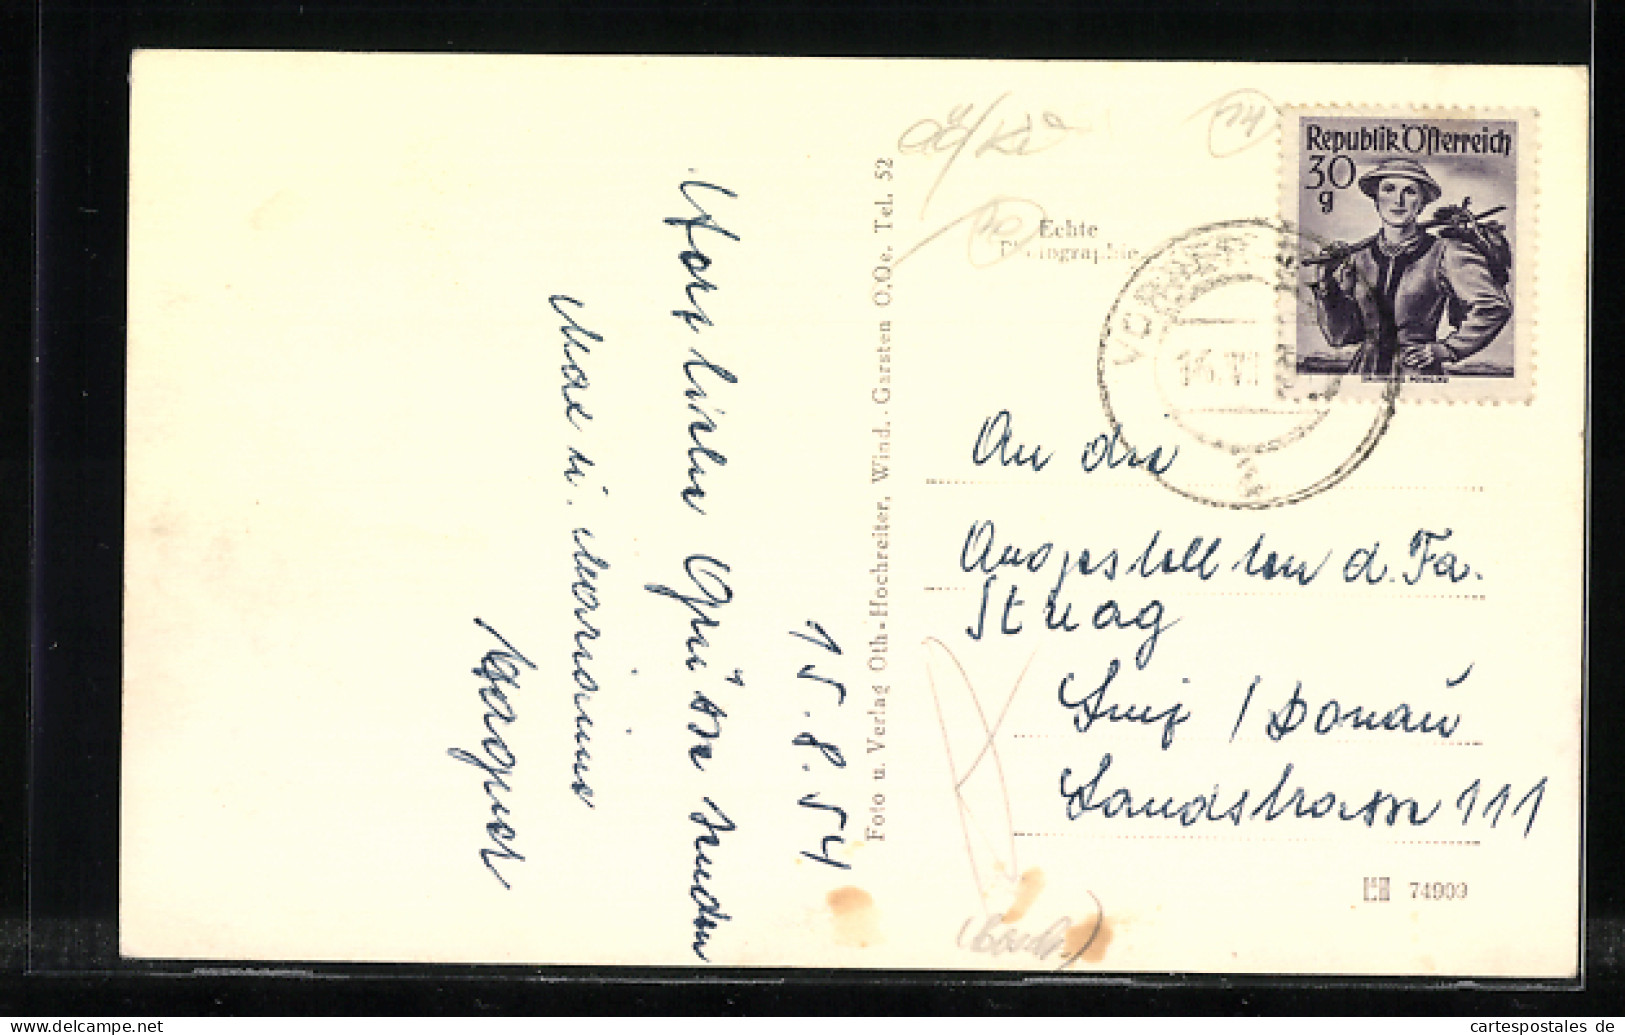 15.8.54
Herzliche Grüsse senden
Max u. Marianne
Wagner
Foto u. Verlag Oth-Hochreiter, Wind. Garsten O.Oe. Tel. 52
Echte
Photographie
14
Republik Österreich
30
g
An die
Angestellten d. Fa.
Stuag
Linz / Donau
Landstrasse 111
74909
cartespostales de